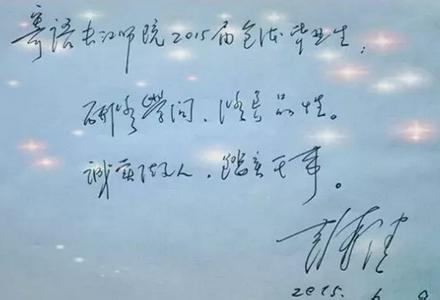 寄语长江师院2015届全体毕业生:
研修學问,涵养品性。
诚实做人,踏实干事。
2015. 6. 9